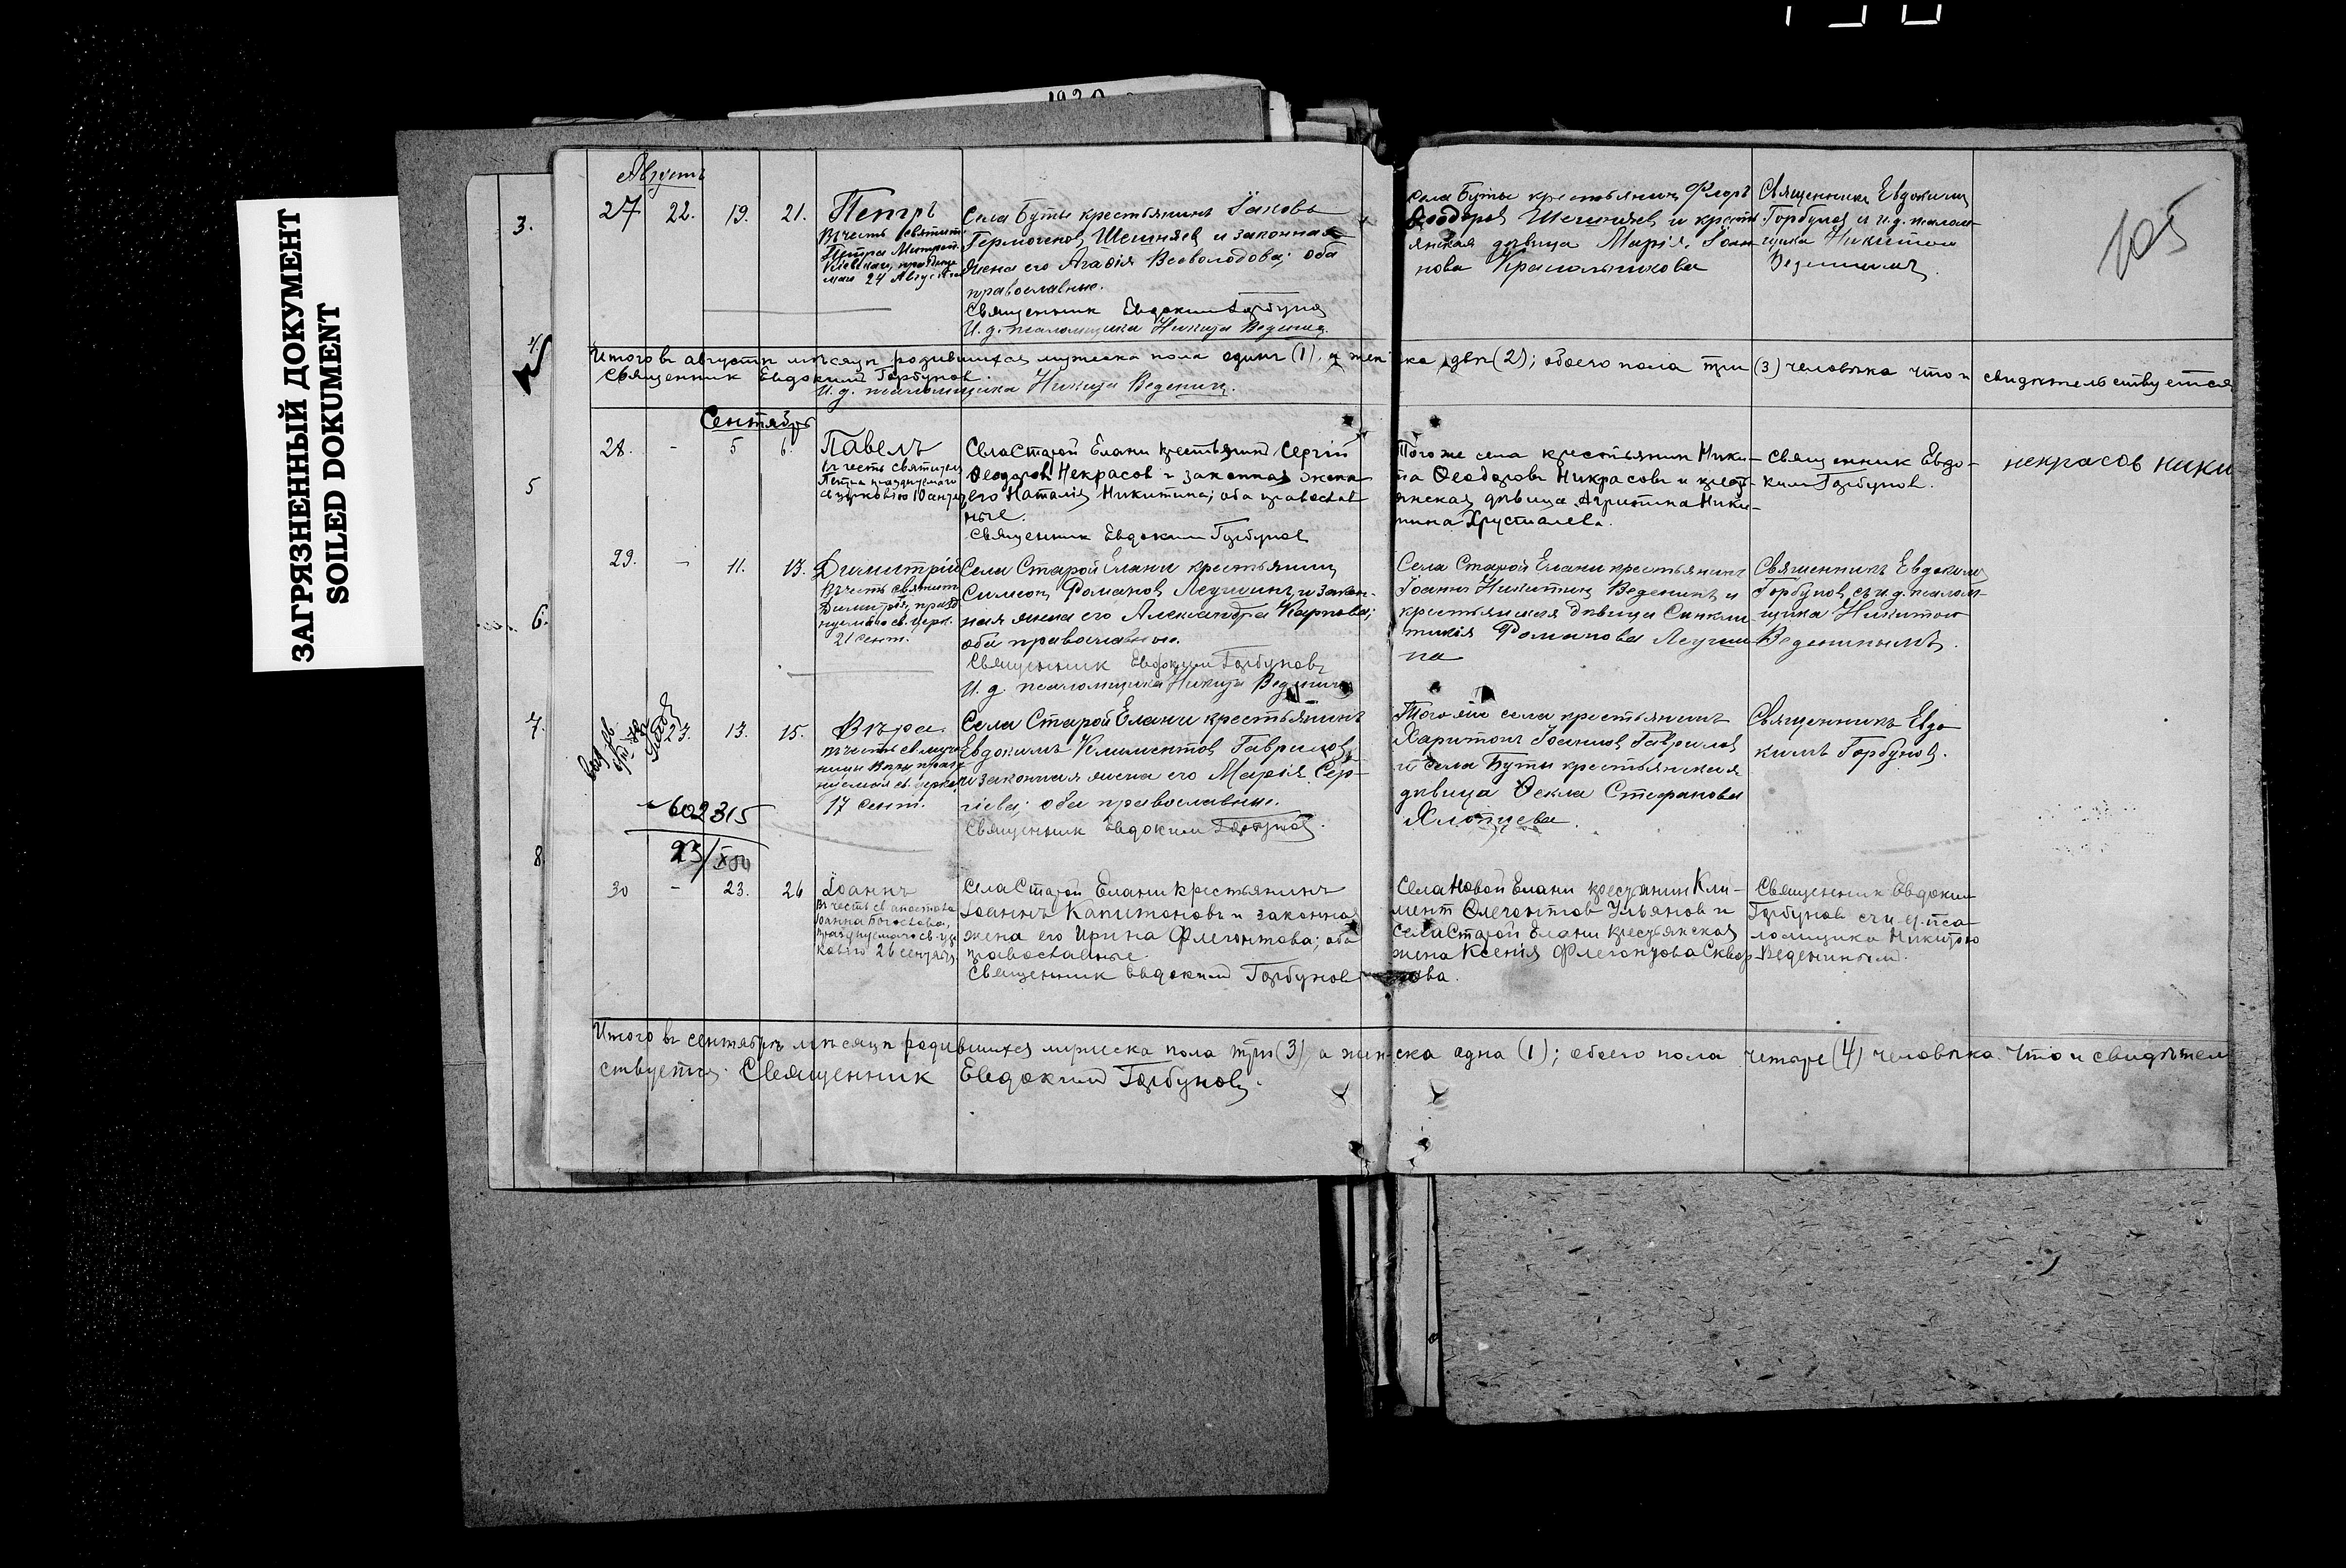 ЗАГРЯЗНЕННЫЙ ДОКУМЕНТ
SOILED DOKUMENT
1920
105
3.
5
6.
7.
8.
Августъ
27 22. 19. 21. Петръ
Въ честь святит.
Петра Митроп.
Кіевскаго, праздну
маго 24 Августа
Села Буты крестьянинъ Іаковъ
Гермогеновъ и законная
жена его Агафія Всеволодова; оба
православные.
Священник Евдоким Горбунов
И. д. псаломщика Никита Веденин.
села Буты крестьянинъ Флоръ
Ѳеодоровъ и кресть
янская дѣвица Марія Іоан
нова Красильникова
Священникъ Евдокимъ
Горбуновъ и и.д. псалом-
щика Никитою
Веденинымъ.
Итого въ августѣ мѣсяцѣ родившихся мужеска пола одинъ (1), а женска двѣ (2); обоего пола три (3) человѣка что и свидѣтельствуется
Священник Евдоким Горбунов.
И. д. псаломщика Никита Веденин.
Сентябрь
28. - 5 6. Павелъ
въ честь святителя
Петра празднуемаго
Села Старой Елани крестьянин Сергій
Ѳеодоров Некрасов и законная жена
его Наталія Никитина; оба православ
ные.
Священник Евдоким Горбунов
Того же села крестьянин Ники-
та Ѳеодоровъ Некрасовъ и кресть
янская дѣвица Агрипина Ники-
тина Хрусталева.
Священник Евдо-
ким Горбунов.
некрасов ники
29. - 11. 13. Димитрій
Въ честь святит.
Димитрія, празд
нуемаго св. церк.
21 сент.
Села Старой Елани крестьянинъ
Симеонъ Романовъ и закон-
ная жена его Александра Карпова;
оба православные.
Священник Евдоким Горбуновъ
И. д. псаломщика Никита Веденин
Села Старой Елани крестьянинъ
Іоаннъ Никитинъ Веденинъ и
крестьянская дѣвица Синкли
тикія Романова
на
Священникъ Евдокимъ
Горбуновъ съ и.д. псалом-
щика Никитою
Веденинымъ.
23. 13. 15. Вѣра.
въ честь св. муче
ницы Вѣры, празд
нуемая св. церк.
17 сент.
602315
Села Старой Елани крестьянинъ
Евдокимъ Климентовъ Гавриловъ
и законная жена его Марія Сер-
гіева; оба православные.
Священник Евдоким Горбунов.
Того же села крестьянинъ
Харитонъ Іоанновъ Гавриловъ
и села Буты крестьянская
дѣвица Ѳекла Стефанова
Священникъ Евдо
кимъ Горбуновъ.
30 - 23. 26 Іоаннъ
въ честь св. апостола
Іоанна Богослова,
празднуемаго св. цер
ковію 26 сентября
Села Старой Елани крестьянинъ
Іоаннъ Капитоновъ и законная
жена его Ирина Флегонтова; оба
православные.
Священник Евдоким Горбунов
Села Новой Елани крестьянин Кли-
мент Флегонтов Ульянов и
села Старой Елани крестьянская
жена Ксенія Флегонтова Сквор
цова.
Священник Евдоким
Горбунов съ и.д. пса-
ломщика Никитою
Вединином.
Итого въ сентябрѣ мѣсяцѣ родившихся мужеска пола три (3), а женска одна (1); обоего пола четыре (4) человѣка. Что и свидѣтель
ствуется. Священник Евдоким Горбуновъ.